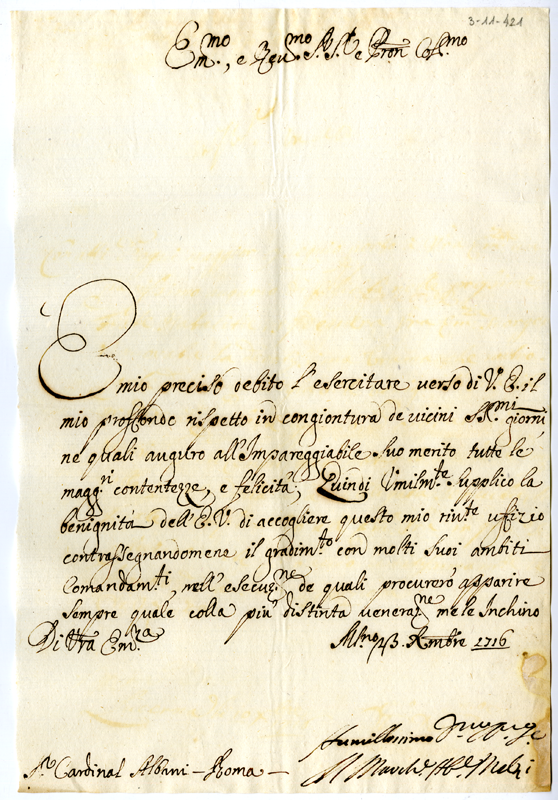 3-11-421
Em.mo, e e Pron Col.mo
È mio preciso debito l'esercitare verso di V. E. il
mio profondo rispetto in congiontura de vicini SS.mi giorni,
ne quali auguro all'Impareggiabile suo merito tutte le
magg.ri contentezze, e felicità, Quindi Umilm.te supplico la
benignità dell'E. V. di accogliere questo mio riv.te uffizio
contrassegnandomene il gradim.to con molti suoi ambiti
Comandam.ti, nell'esecuz.ne de quali procurerò apparire
sempre quale colla più distinta veneraz.ne me le Inchino
Di Vra Em.za Mil.no 23. Xmbre 1716
Sr Cardinal Albani - Roma -
humilissimo
Il March.